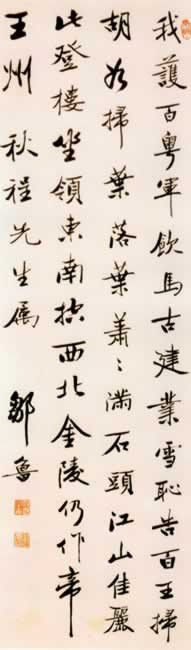 我護百粵軍飲馬古建業雪恥告百王掃
胡如掃葉落葉蕭〻滿石頭江山佳麗
此登樓坐領東南控西北金陵仍作帝
王州 秋程先生屬 鄒魯